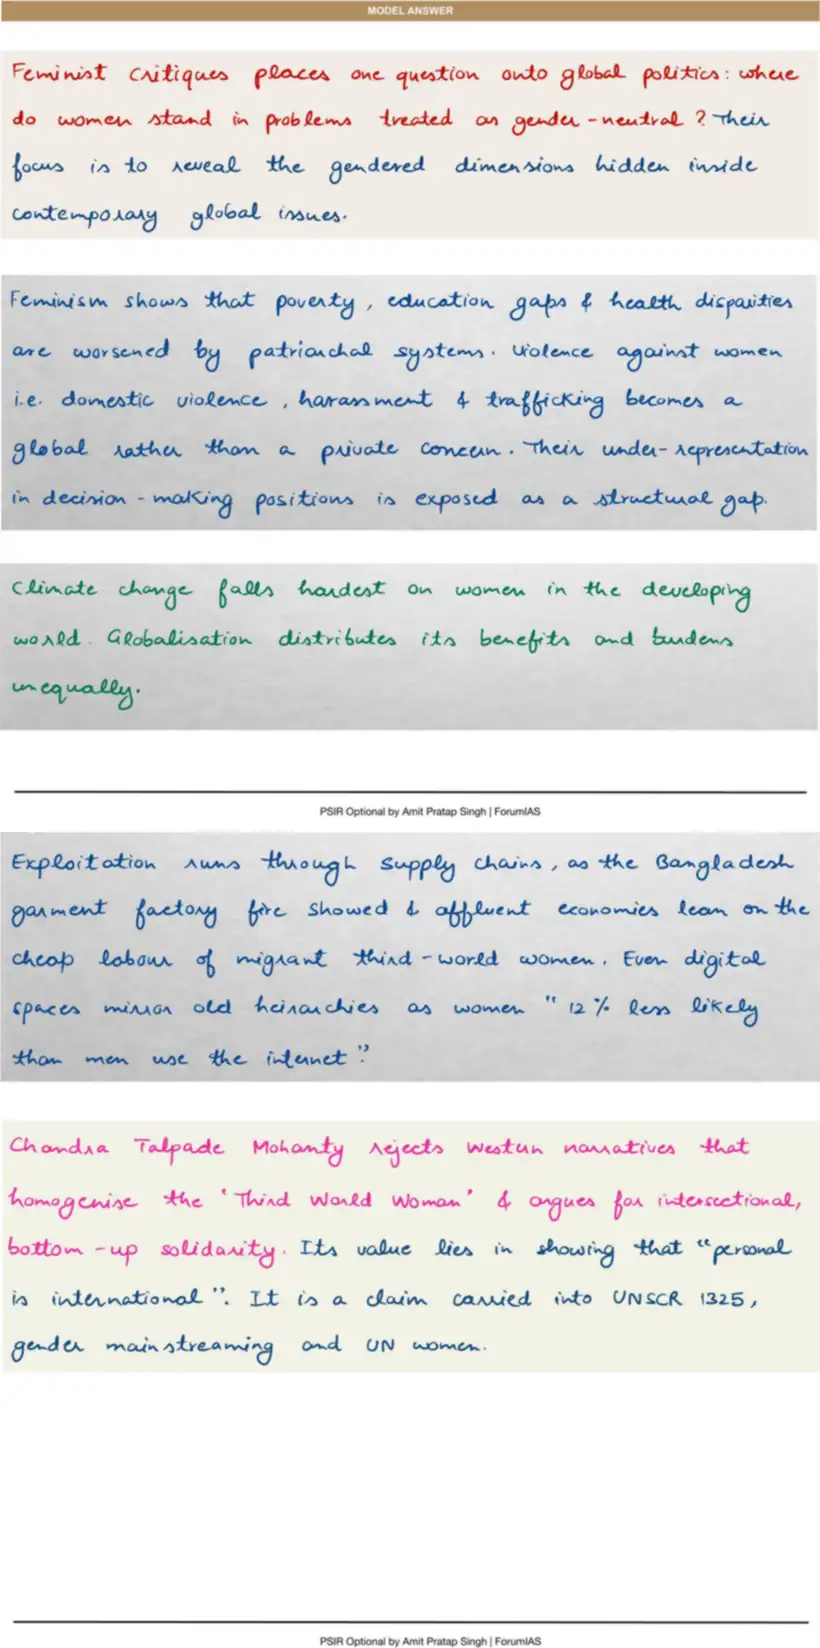 MODEL ANSWER
Feminist critiques places one question onto global politics: where
do women stand in problems treated as gender-neutral? Their
focus is to reveal the gendered dimensions hidden inside
contemporary global issues.
Feminism shows that poverty, education gaps & health disparities
are worsened by patriarchal systems. Violence against women
i.e. domestic violence, harassment & trafficking becomes a
global rather than a private concern. Their under-representation
in decision-making positions is exposed as a structural gap.
Climate change falls hardest on women in the developing
world. Globalisation distributes its benefits and burdens
unequally.
PSIR Optional by Amit Pratap Singh | ForumIAS
Exploitation runs through supply chains, as the Bangladesh
garment factory fire showed & affluent economies lean on the
cheap labour of migrant third-world women. Even digital
spaces mirror old heirarchies as women "12% less likely
than men use the internet".
Chandra Talpade Mohanty rejects western narratives that
homogenise the 'Third World Woman' & argues for intersectional,
bottom-up solidarity. Its value lies in showing that "personal
is international". It is a claim carried into UNSCR 1325,
gender mainstreaming and UN women.
PSIR Optional by Amit Pratap Singh | ForumIAS